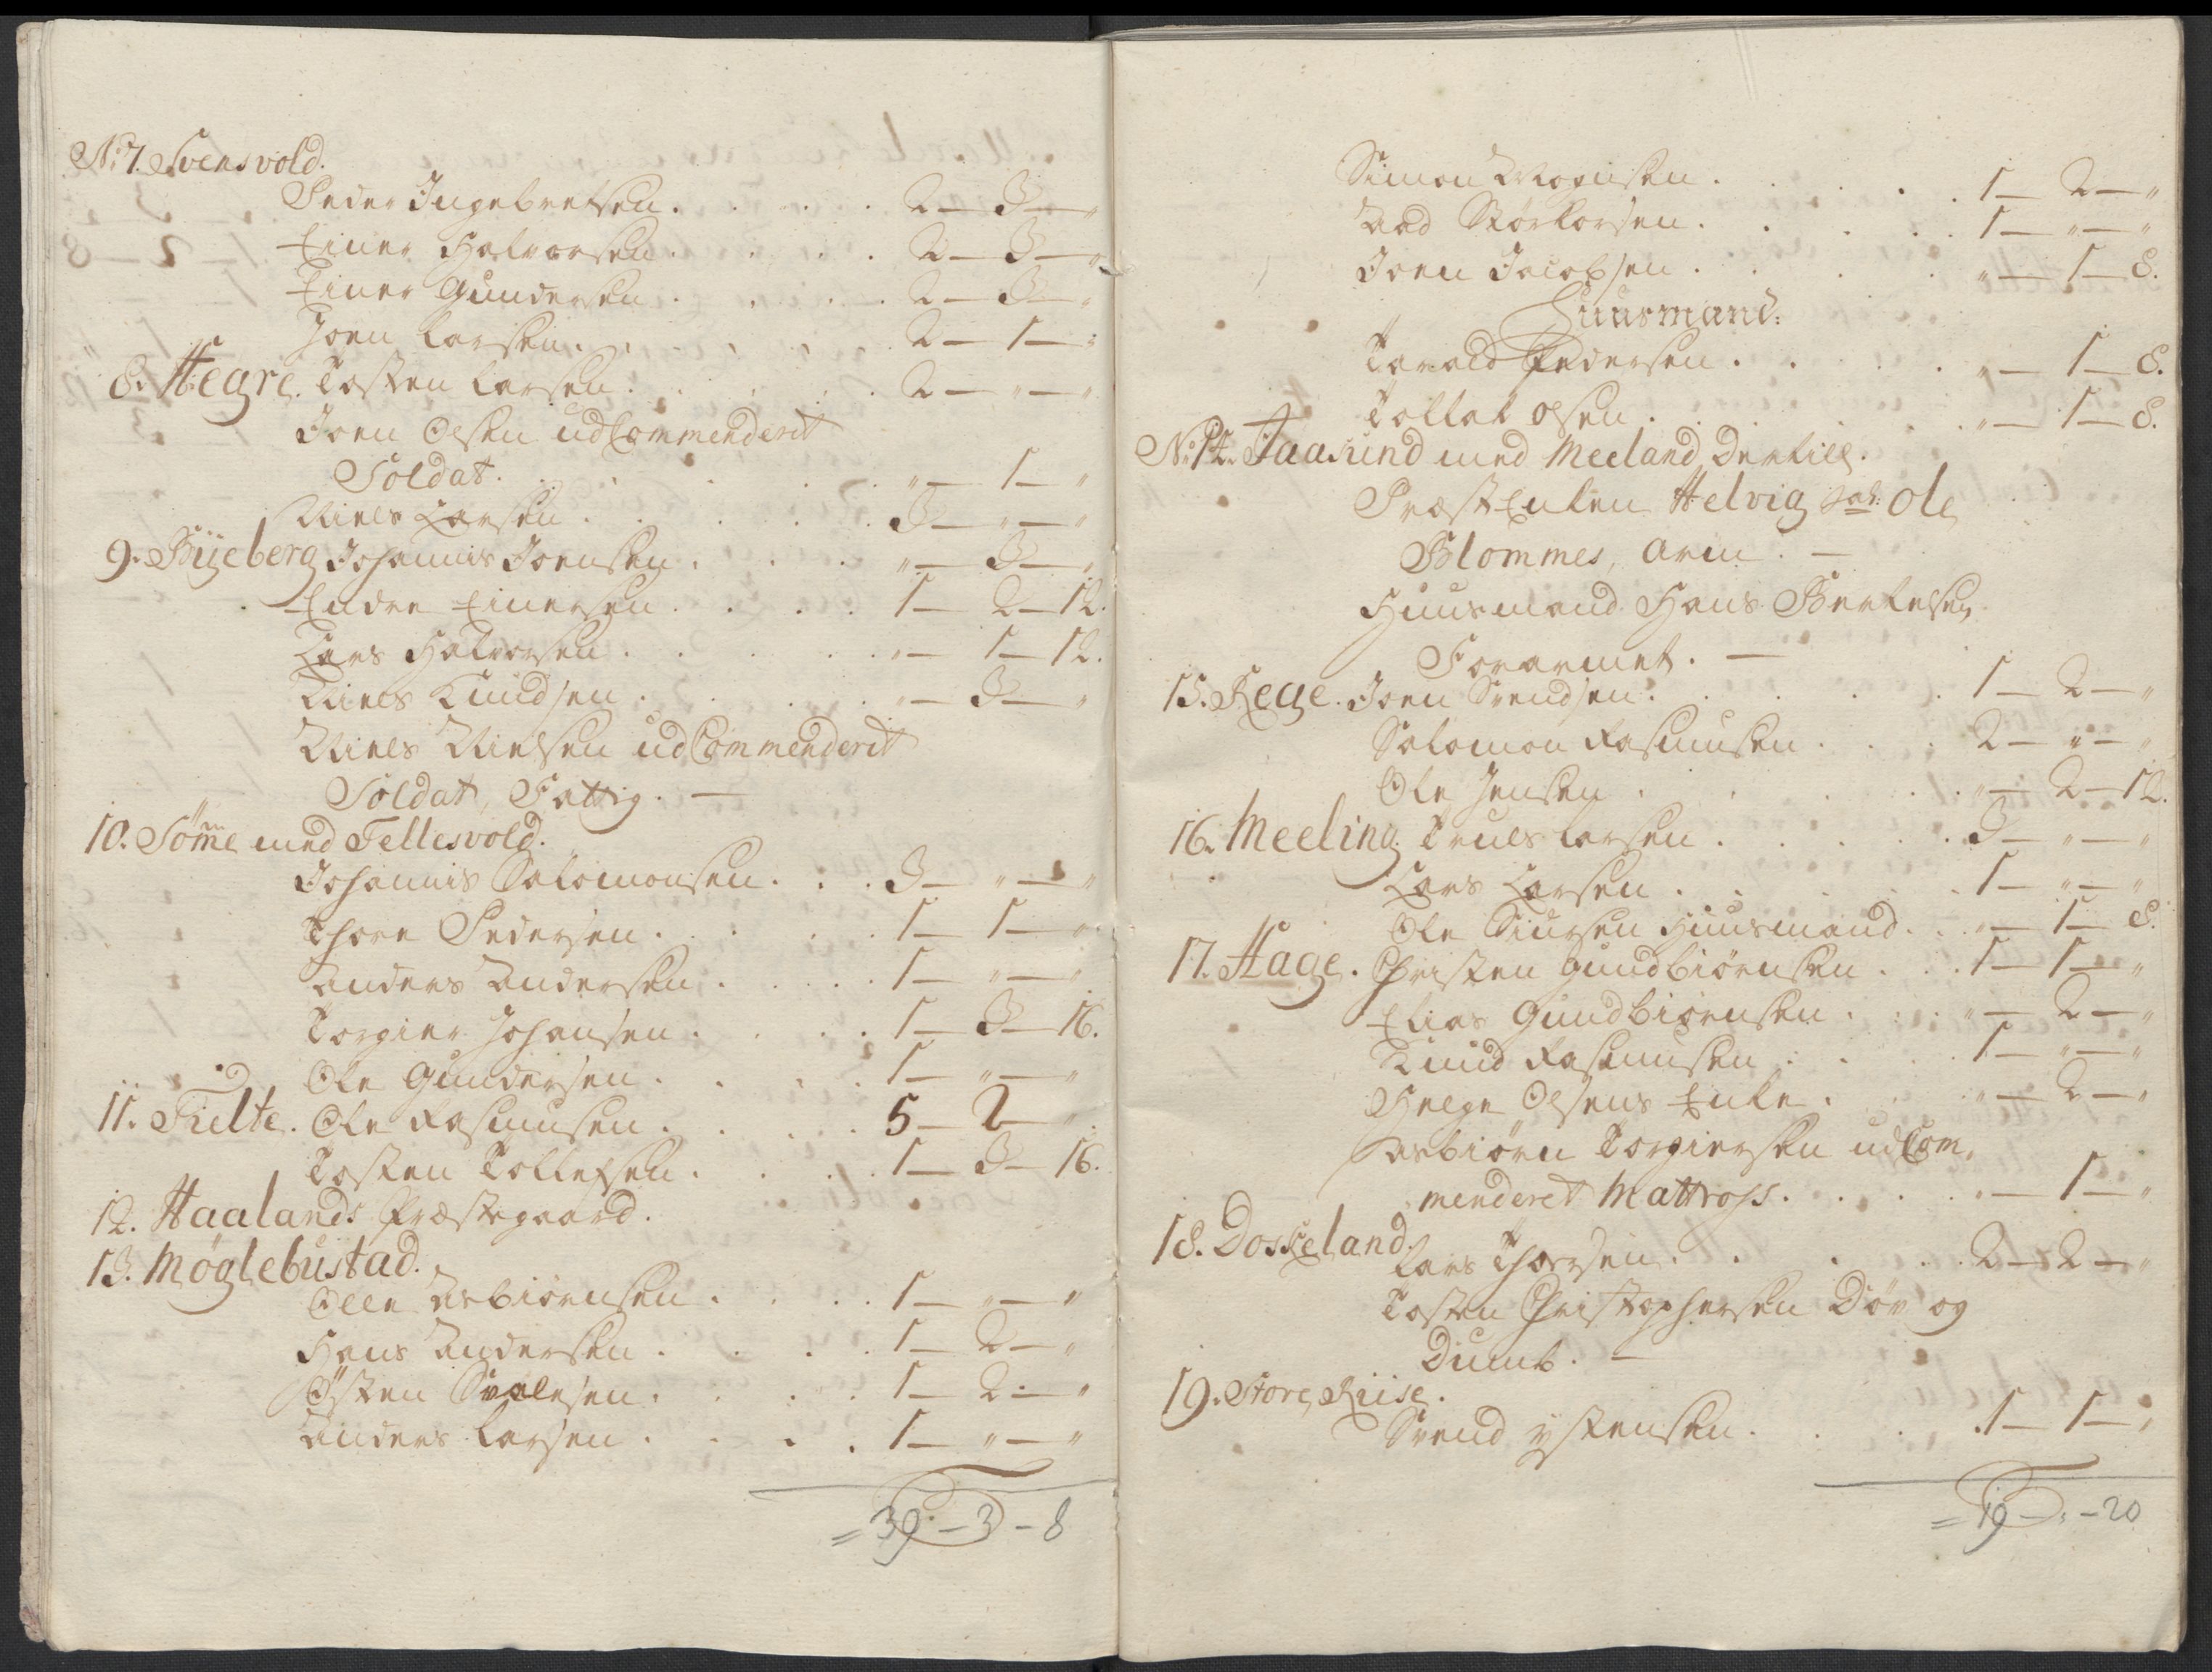 N: 7. Svensvold.
Peder Ingebretsen . . . . 2 — 3 — "
Einer Halvorsen . . . . 2 — 3 — "
Einer Gundersen . . . . 2 — 3 — "
Joen Larsen . . . . . 2 — 1 — "
8. Hegre. Tosten Larsen . . . . 2 — " — "
Joen Olsen udCommenderit
Soldat . . . . . " — 1 — "
Niels Larsen . . . . . 3 — " — "
9. Bijeberg Johannis Joensen . . . " — 3 — "
Endre Einersen . . . . 1 — 2 — 12.
Lars Halvorsen . . . . " — 1 — 12.
Niels Knudsen . . . . " — 3 — "
Niels Nielsen udCommenderit
Soldat, Fattig. —
10. Sömme med Tellesvold.
Johannis Salomonsen . . . 3 — " — "
Thore Pedersen . . . . 1 — 1 — "
Anders Andersen . . . . 1 — " — "
Torgier Johansen . . . . 1 — 3 — 16.
Ole Gundersen . . . . 1 — " — "
11. Tielte. Ole Rasmusen . . . . 5 — 2 — "
Tosten Tollefsen . . . . 1 — 3 — 16.
12. Haalands Præstegaard.
13. Møglebustad.
Olle Asbiörnsen . . . . 1 — " — "
Hans Andersen . . . . 1 — 2 — "
Östen Svalesen . . . . 1 — 2 — "
Anders Larsen . . . . 1 — " — "
= 39 — 3 — 8
Simon Mogensen . . . . 1 — 2 — "
Aad Störkorsen . . . . 1 — " — "
Joen Jacobsen . . . . " — 1 — 8.
Huusmand:
Tarald Pedersen . . . . " — 1 — 8.
Tollak Olsen . . . . " — 1 — 8.
No: 14. Taasund med Meeland Dertill.
Præst Enken Helvig Sal: Ole
Blommes, Arm. —
Huusmand Hans Bertelsen
Forarmet. —
15. Rege. Joen Svendsen . . . . 1 — 2 — "
Salomon Rasmusen . . . 2 — " — "
Ole Jensen . . . . " — 2 — 12.
16. Meeling. Truls Larsen . . . . 3 — " — "
Lars Larsen . . . . 1 — " — "
Ole Siursen Huusmand . . " — 1 — 8.
17. Hage. Christen Gundbiörnsen . . 1 — 1 — "
Elias Gundbiörnsen . . . " — 2 — "
Knud Rasmusen . . . . 1 — " — "
Helge Olsens Enke . . . " — 2 — "
Asbiörn Torgiersen udCom,
menderet Mattross . . . . " — 1 — "
18. Doskeland.
Lars Thorsen . . . . 2 — 2 — "
Tosten Christophersen Döv og
Dumb. —
19. Store Riise.
Svend ystensen . . . . 1 — 1 — "
= 19 — " — 20